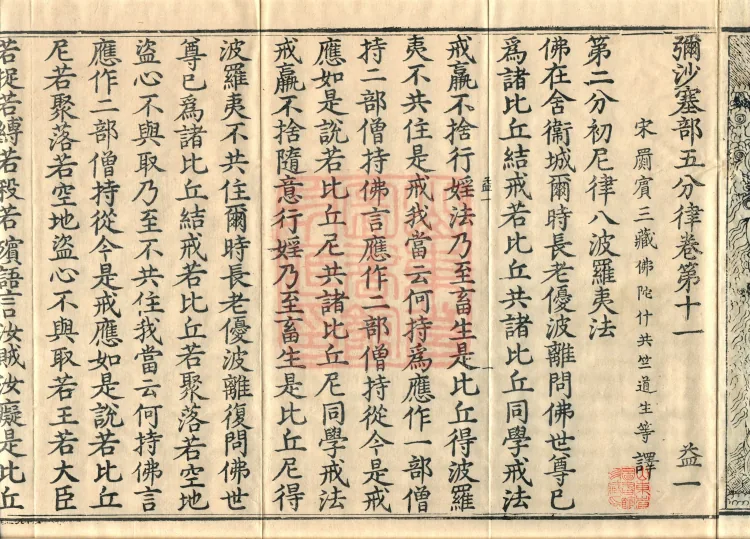 彌沙塞部五分律卷第十一 益一
宋罽賓三藏佛陀什共竺道生等譯
第二分初尼律八波羅夷法
佛在舍衛城爾時長老優波離問佛世尊已
為諸比丘結戒若比丘共諸比丘同學戒法
戒羸不捨行婬法乃至畜生是比丘得波羅
益一
夷不共住是戒我當云何持為應作一部僧
持二部僧持佛言應作二部僧持從今是戒
應如是說若比丘尼共諸比丘尼同學戒法
戒羸不捨隨意行婬乃至畜生是比丘尼得
波羅夷不共住爾時長老優波離復問佛世
尊已為諸比丘結戒若比丘若聚落若空地
盜心不與取乃至不共住我當云何持佛言
應作二部僧持從今是戒應如是說若比丘
尼若聚落若空地盜心不與取若王若大臣
若捉若縛若殺若擯語言汝賊汝癡是比丘